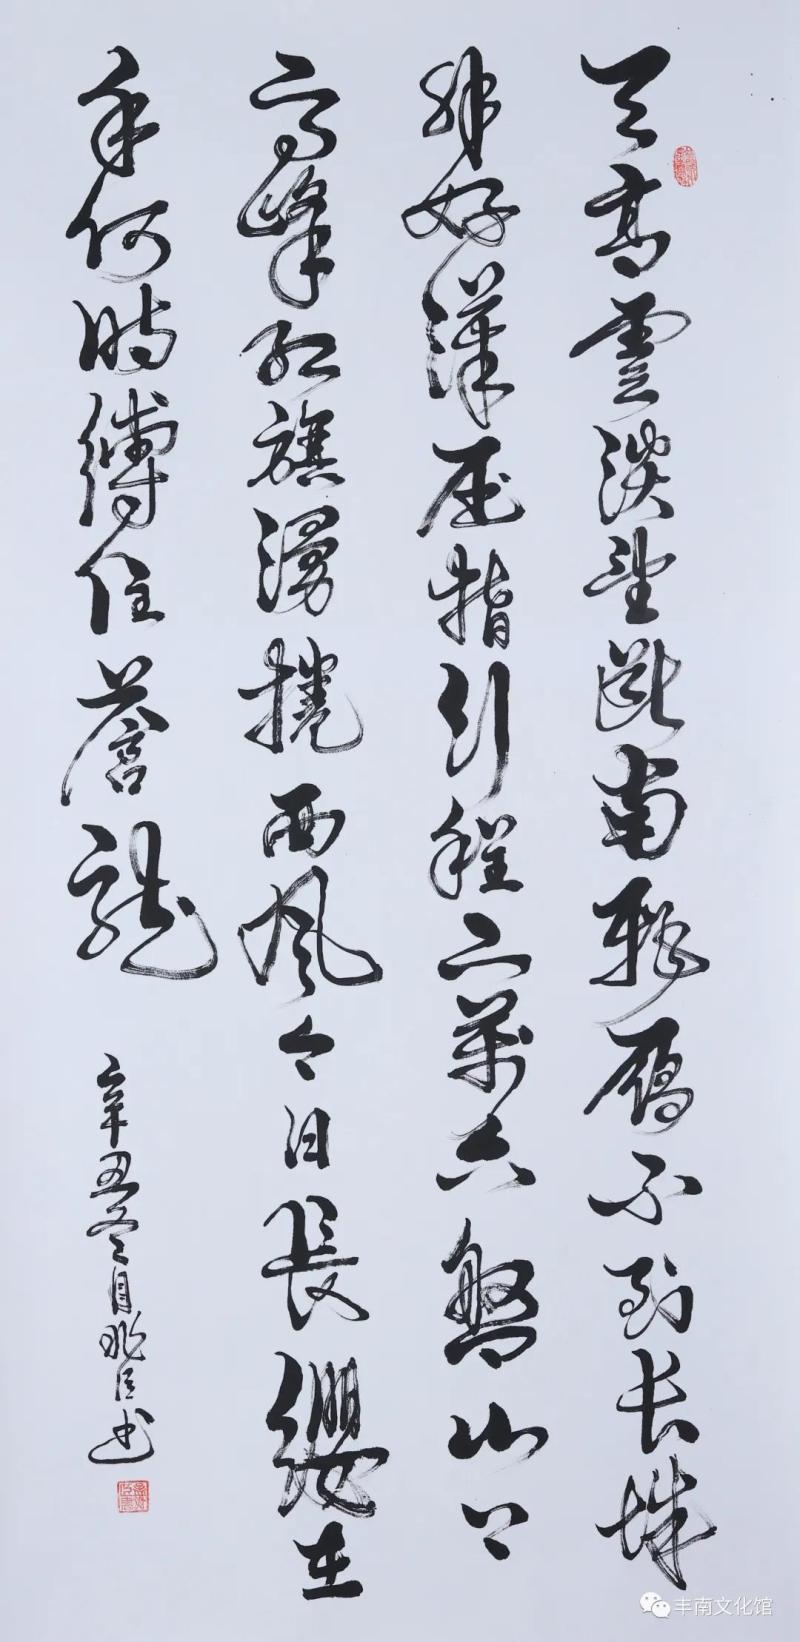 天高雲淡望斷南飛雁不到长城
非好漢屈指行程二萬六盤山上
高峰紅旗漫捲西風今日長纓在
手何時縛住蒼龍
辛丑冬月书
丰南文化馆